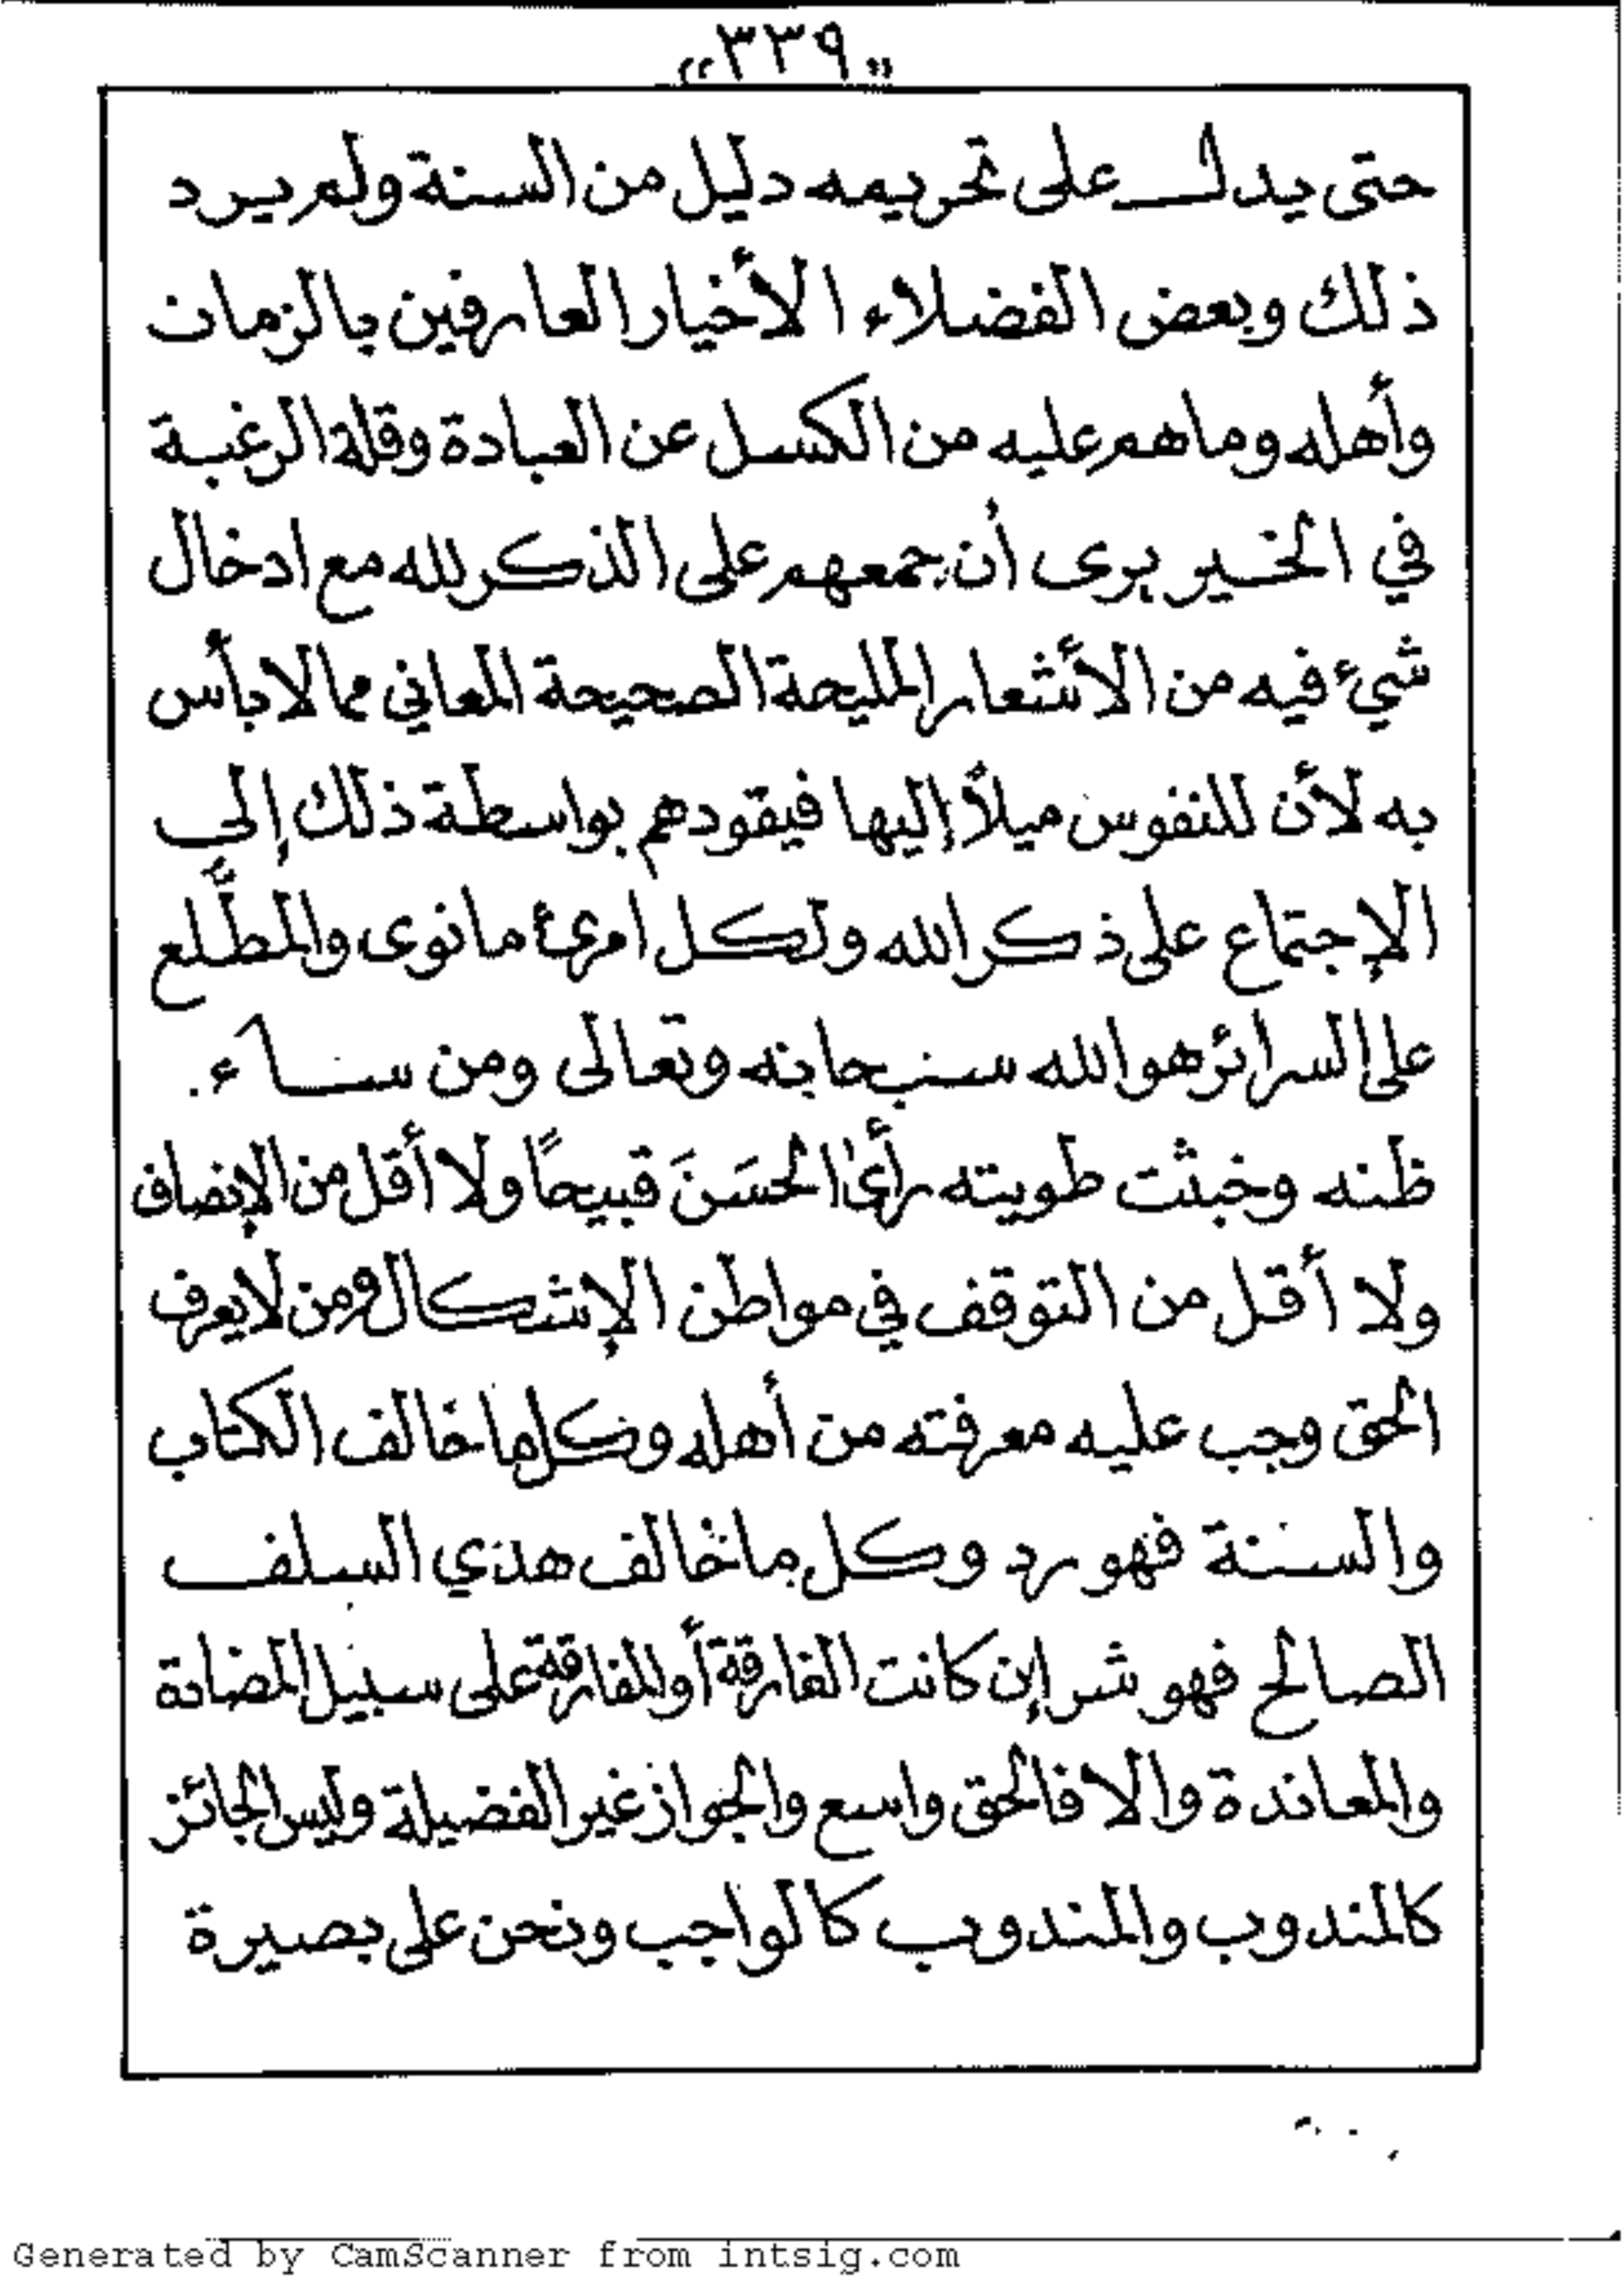 «٣٣٩»
حتى يدل على تحريمه دليل من السنة ولم يرد
ذلك وبعض الفضلاء الأخيار العارفين بالزمان
وأهله وماهم عليه من الكسل عن العبادة وقلة الرغبة
في الخير يرى أن جمعهم على الذكر لله مع ادخال
شيء فيه من الأشعار المليحة الصحيحة المعاني مما لا بأس
به لأن للنفوس ميلاً إليها فيقودهم بواسطة ذلك إلى
الإجتماع على ذكر الله ولكل امرئ ما نوى والمطَّلع
على السرائر هو الله سبحانه وتعالى ومن ساء
ظنه وخبثت طويته رأى الحسَنَ قبيحًا ولا أقل من الإنصاف
ولا أقل من التوقف في مواطن الإشكال ومن لا يعرف
الحق وجب عليه معرفته من أهله وكل ما خالف الكتاب
والسنة فهو رد وكل ما خالف هدي السلف
الصالح فهو شر إن كانت الفارقة أو المفارقة على سبيل المضادة
والمعاندة والا فالحق واسع والجواز غير الفضيلة وليس الجائز
كالمندوب والمندوب كالواجب ونحن على بصيرة
Generated by CamScanner from intsig.com